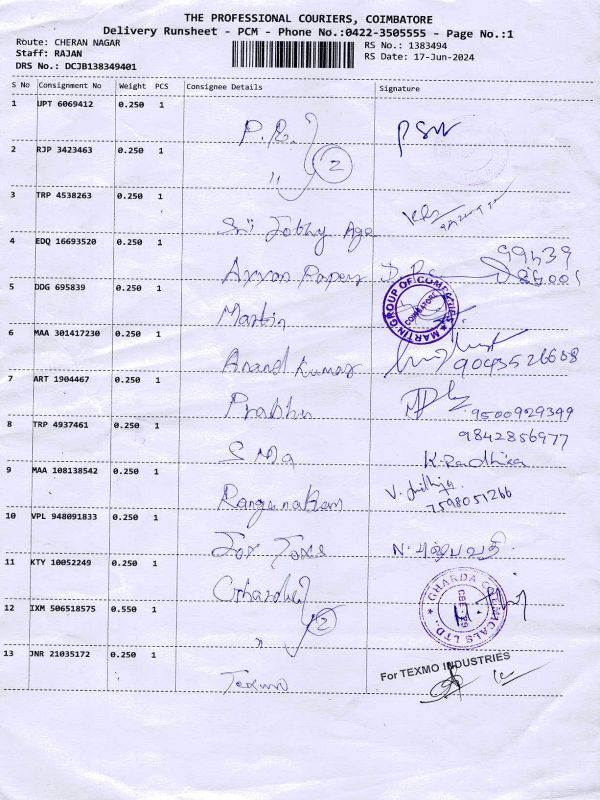 THE PROFESSIONAL COURIERS, COIMBATORE
Delivery Runsheet - PCM - Phone No.:0422-3505555 - Page No.:1
Route: CHERAN NAGAR
Staff: RAJAN
DRS No.: DCJB138349401
RS No.: 1383494
RS Date: 17-Jun-2024
S No Consignment No Weight PCS Consignee Details Signature
1 UPT 6069412 0.250 1
2 RJP 3423463 0.250 1 " 2
3 TRP 4538263 0.250 1 Sri
4 EDQ 16693520 0.250 1 Axxon Papers
5 DDG 695839 0.250 1 Martin MARTIN GROUP OF COMPANIES COIMBATORE
6 MAA 301417230 0.250 1 Anand Kumar 9043526608
7 ART 1904467 0.250 1 Prabhu 9500929399
9842856977
8 TRP 4937461 0.250 1 SMA K. Radhika
9 MAA 108138542 0.250 1 Ranganathan V. 7598051266
10 VPL 948091833 0.250 1
11 KTY 10052249 0.250 1 GHARDA CHEMICALS LTD. CBE-29
12 IXM 506518575 0.550 1 " 2
13 JNR 21035172 0.250 1 Texmo For TEXMO INDUSTRIES